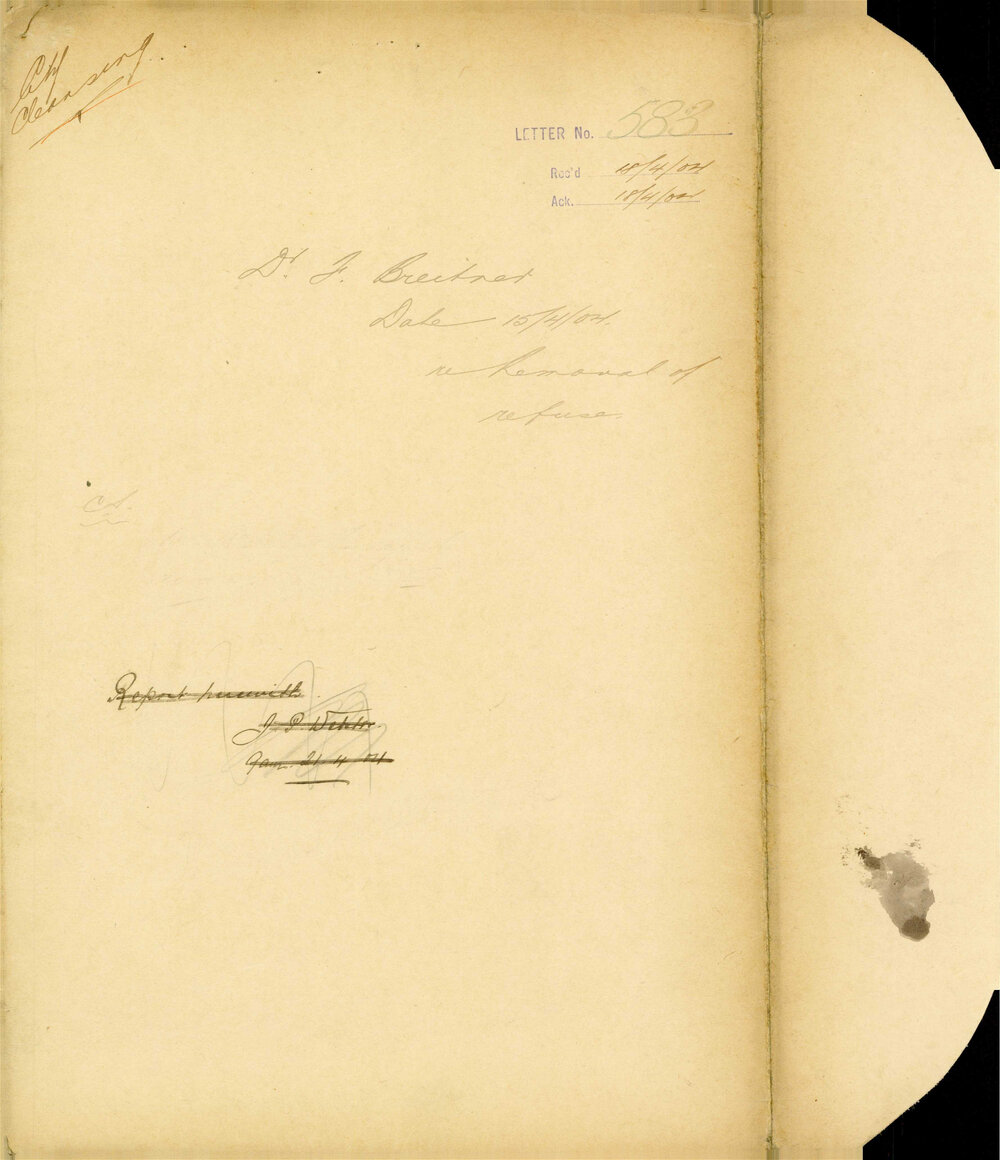 Cleansing
LETTER No. 583
Rec'd 18/4/04
Ack. 18/4/04
Dr F. Breitner
Date 15/4/04.
re Removal of
refuse.
Report herewith.
J P
21 4 04